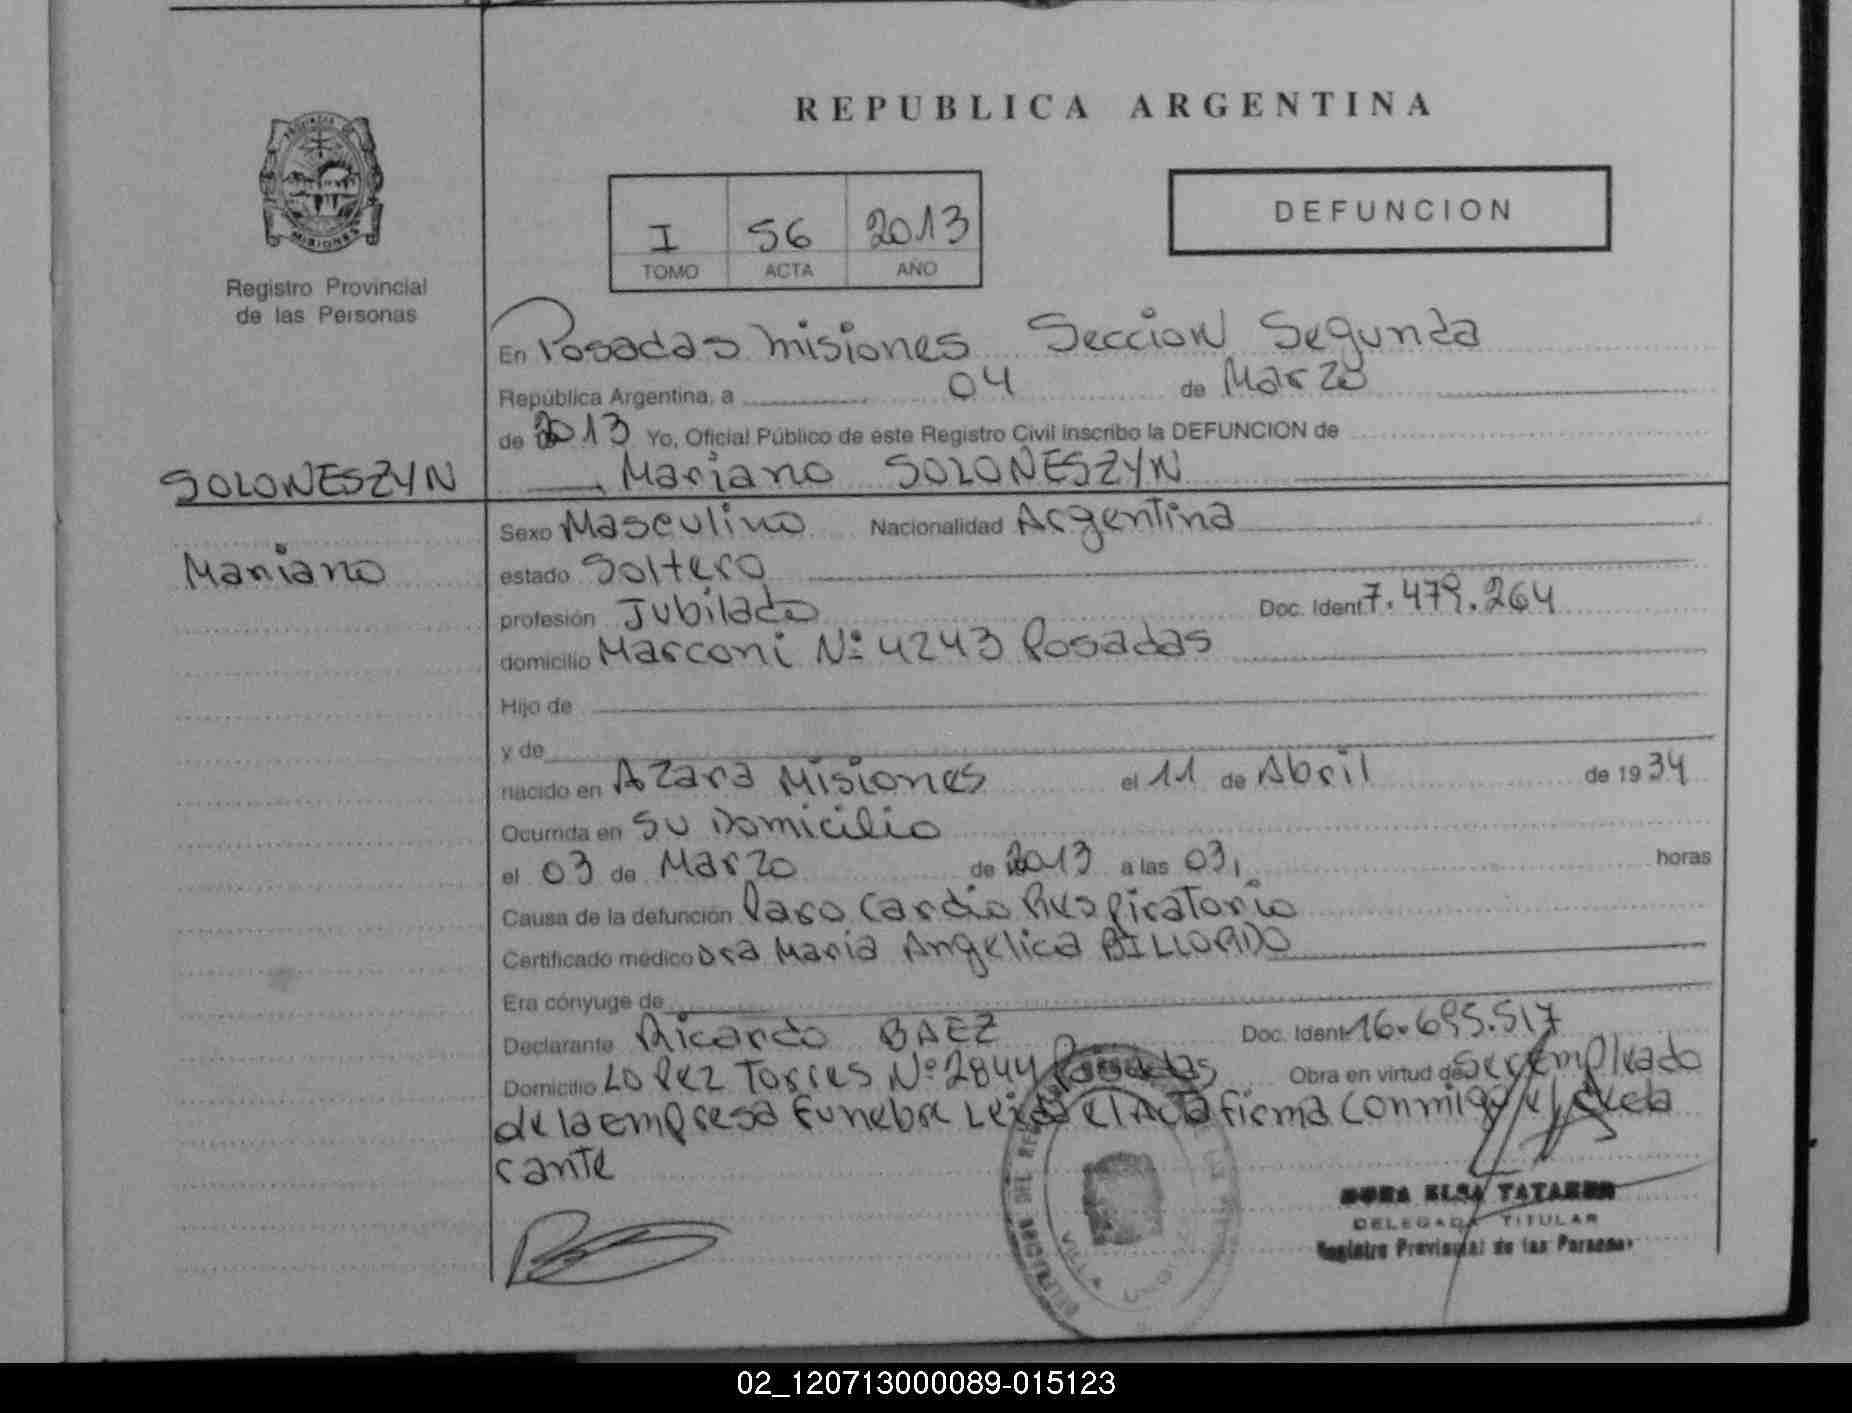 REPUBLICA ARGENTINA
PROVINCIA DE
MISIONES
Registro Provincial
de las Personas
I 56 2013
TOMO ACTA AÑO
DEFUNCION
En Posadas Misiones Seccion Segunda
República Argentina, a 04 de Marzo
de 2013 Yo, Oficial Público de este Registro Civil inscribo la DEFUNCION de
Mariano SOLONESZYN
SOLONESZYN
Mariano
Sexo Masculino Nacionalidad Argentina
estado Soltero
profesión Jubilado Doc. Ident 7.479.264
domicilio Marconi Nº 4243 Posadas
Hijo de
y de
nacido en Azara Misiones el 11 de Abril de 1934
Ocurrida en Su Domicilio
el 03 de Marzo de 2013 a las 03, horas
Causa de la defunción Paro Cardio Respiratorio
Certificado médico Dra Maria Angelica BILLORDO
Era cónyuge de
Declarante Ricardo BAEZ Doc. Ident 16.695.517
Domicilio Lopez Torres Nº 2844 Posadas Obra en virtud de Ser empleado
de la empresa Funebre Leida el Acta firma conmigo el decla
rante
ELSA
DELEGADA TITULAR
Registro Provincial de las Personas
02_120713000089-015123